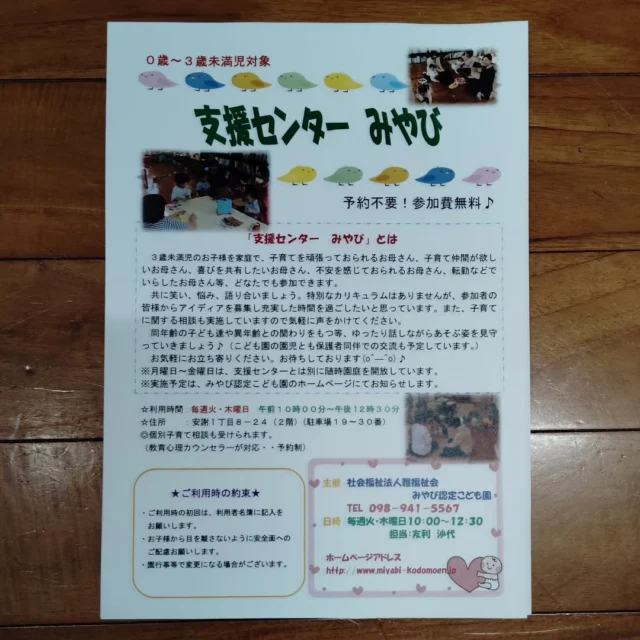 0歳～3歳未満児対象
支援センター みやび
予約不要！参加費無料♪
「支援センター みやび」とは
3歳未満児のお子様を家庭で、子育てを頑張っておられるお母さん、子育て仲間が欲
しいお母さん、喜びを共有したいお母さん、不安を感じておられるお母さん、転勤などで
いらしたお母さん等、どなたでも参加できます。
共に笑い、悩み、語り合いましょう。特別なカリキュラムはありませんが、参加者の
皆様からアイディアを募集し充実した時間を過ごしたいと思っています。また、子育て
に関する相談も実施していますので気軽に声をかけてください。
同年齢の子ども達や異年齢との関わりをもつ等、ゆったり話しながらあそぶ姿を見守
っていきましょう♪（こども園の園児とも保護者同伴での交流も予定しています。）
お気軽にお立ち寄りください。お待ちしております(o^―^o)♪
※月曜日～金曜日は、支援センターとは別に随時園庭を開放しています。
※実施予定は、みやび認定こども園のホームページにてお知らせします。
☆利用時間：毎週火・木曜日 午前10時00分～午後12時30分
☆住所 ：安謝1丁目8－24（2階）（駐車場19～30番）
◎個別子育て相談も受けられます。
（教育心理カウンセラーが対応・・予約制）
★ご利用時の約束★
・ご利用時の初回は、利用者名簿に記入を
お願いします。
・お子様から目を離さないように安全面への
ご配慮お願いします。
・園行事等で変更になる場合がございます。
主催 社会福祉法人雅福祉会
みやび認定こども園
TEL 098-941-5567
日時 毎週火・木曜日10:00～12:30
担当:友利 沙代
ホームページアドレス
http://www.miyabi-kodomoen.jp